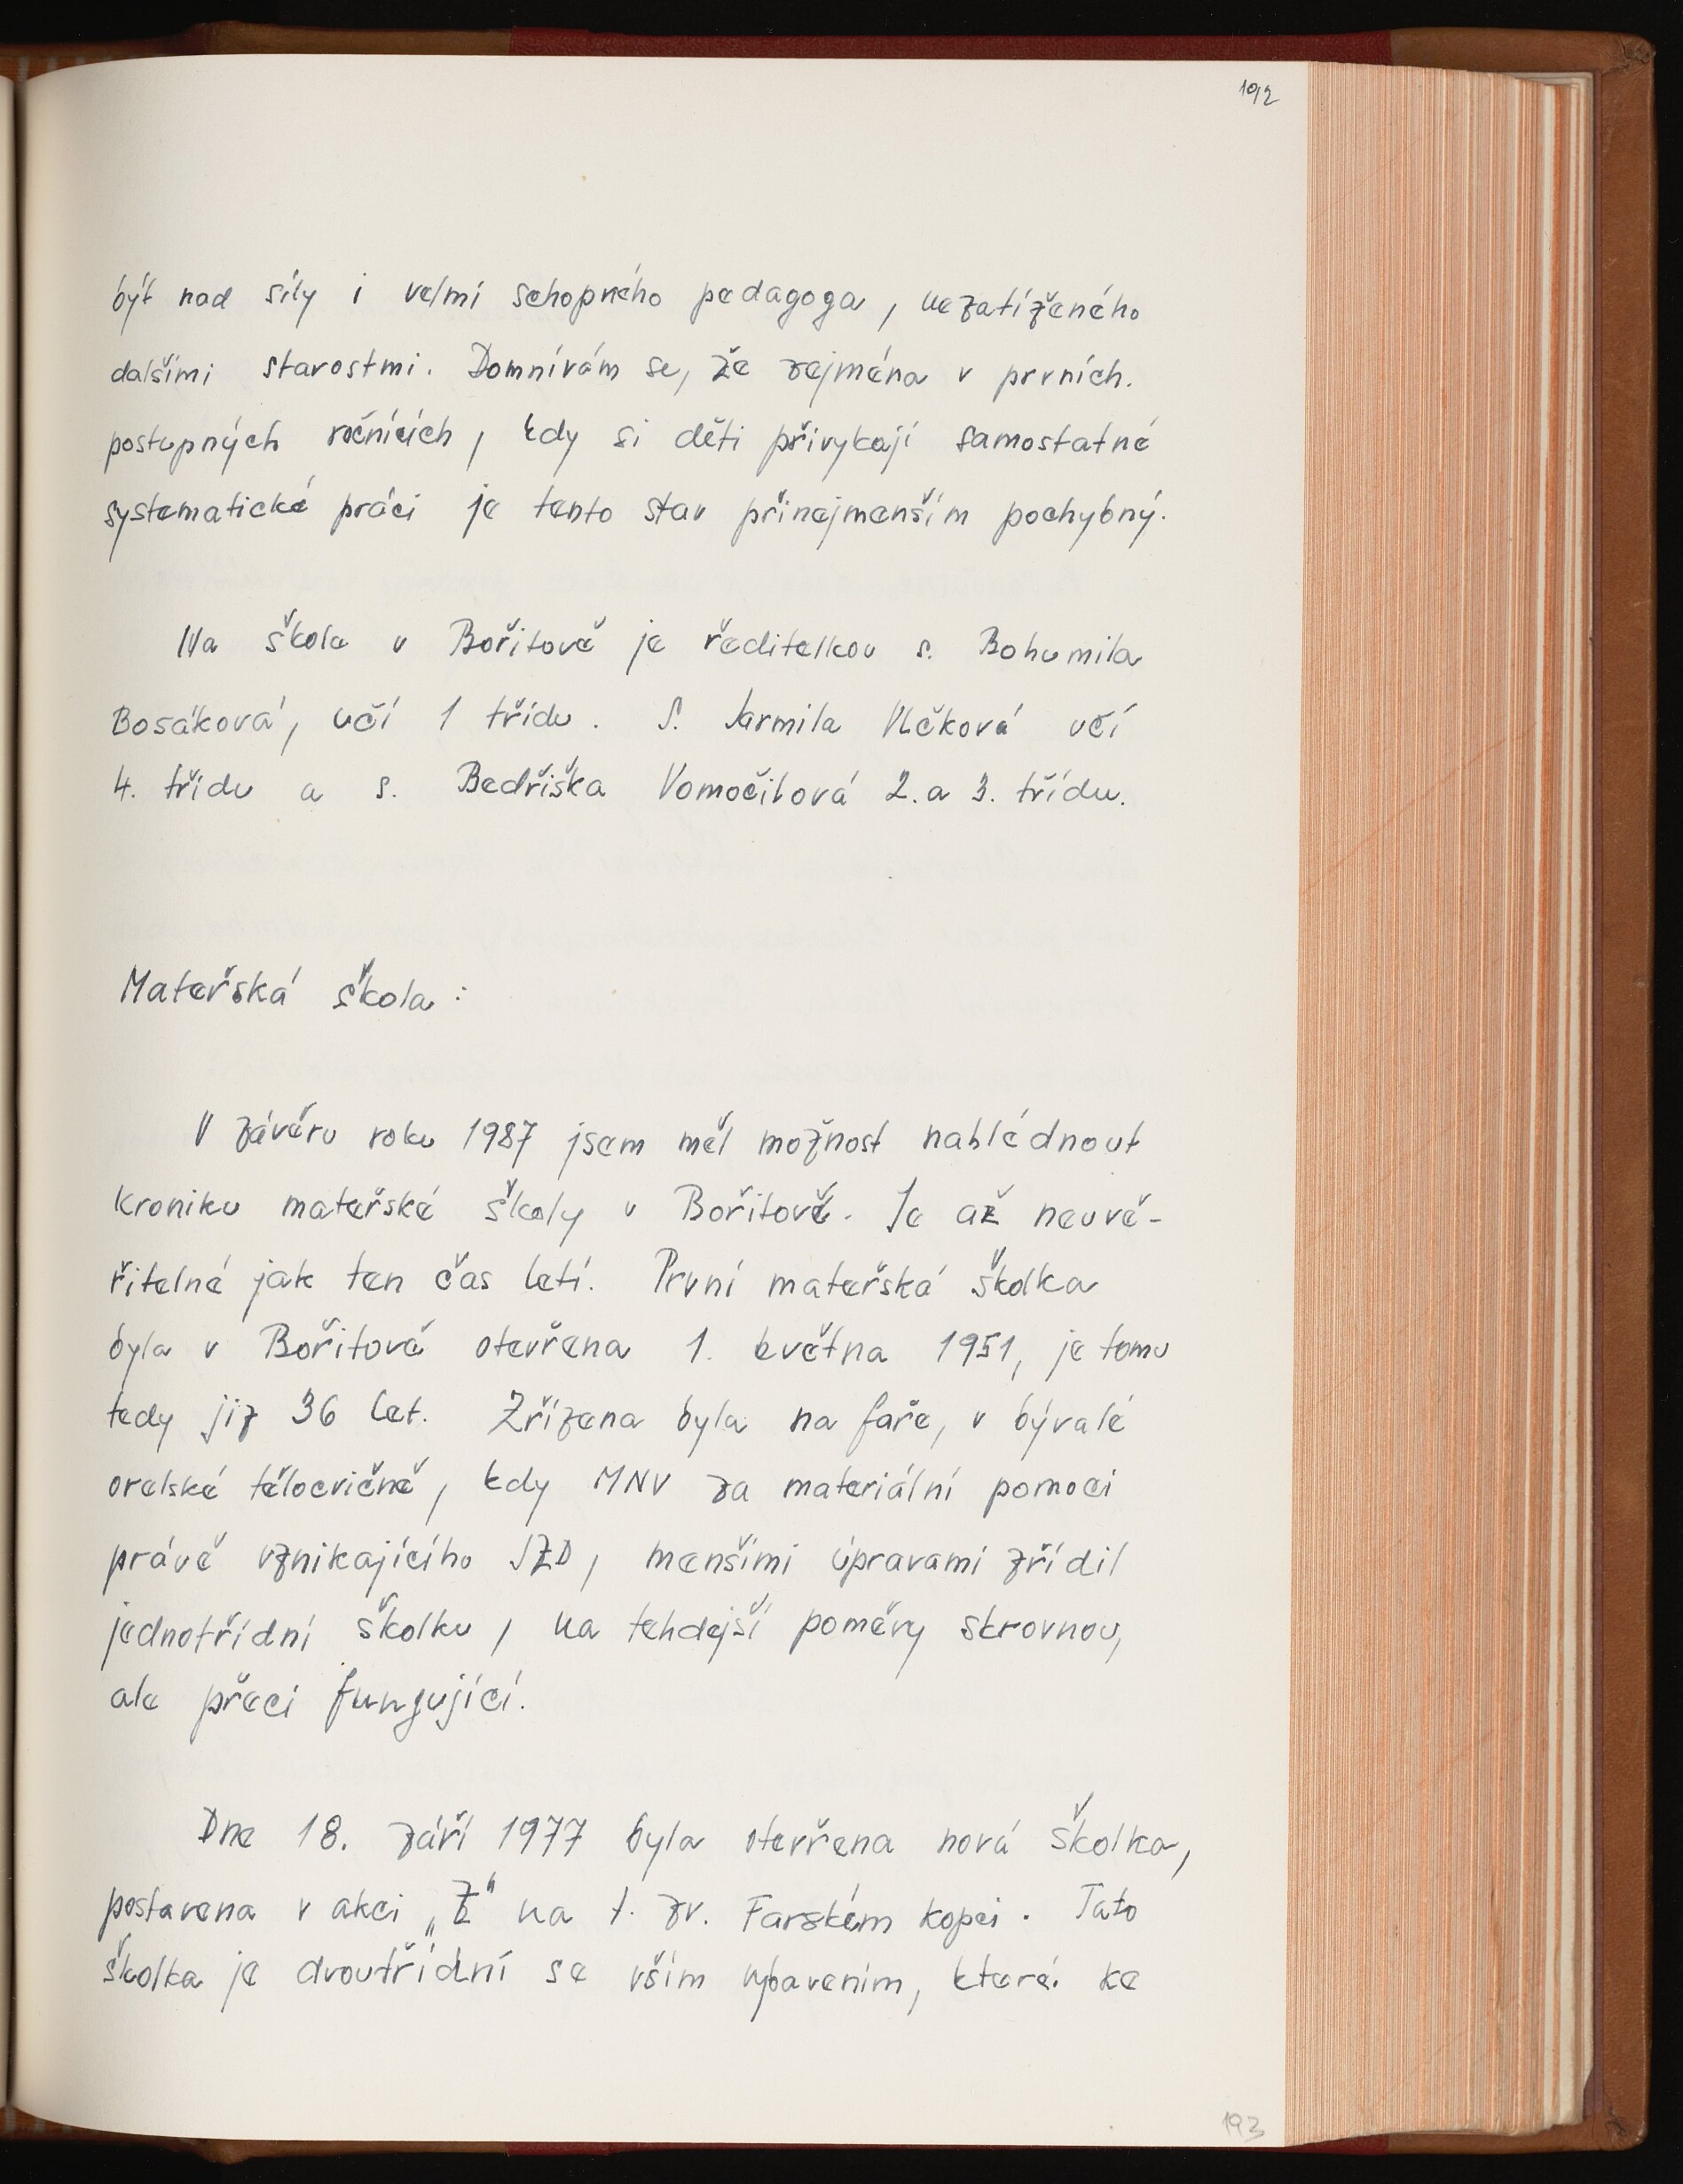 192
být nad síly i velmi schopného pedagoga, nezatíženého
dalšími starostmi. Domnívám se, že zejména v prvních.
postupných ročnících, kdy si děti přivykají samostatné
systematické práci je tento stav přinejmenším pochybný.
Na škole v Bořitově je ředitelkou s. Bohumila
Bosáková, učí 1 třídu. S. Jarmila Vlčková učí
4. třídu a s. Bedřiška Vomočilová 2. a 3. třídu.
Mateřská škola:
V závěru roku 1987 jsem měl možnost nahlédnout
kroniku mateřské školy v Bořitově. Je až neuvě-
řitelné jak ten čas letí. První mateřská školka
byla v Bořitově otevřena 1. května 1951, je tomu
tedy již 36 let. Zřízena byla na faře, v bývalé
orelské tělocvičně, kdy MNV za materiální pomoci
právě vznikajícího JZD, menšími úpravami zřídil
jednotřídní školku, na tehdejší poměry skrovnou,
ale přeci fungující.
Dne 18. září 1977 byla otevřena nová školka,
postavena v akci „Z" na t. zv. Farském kopci. Tato
školka je dvoutřídní se vším vybavením, které ke
193